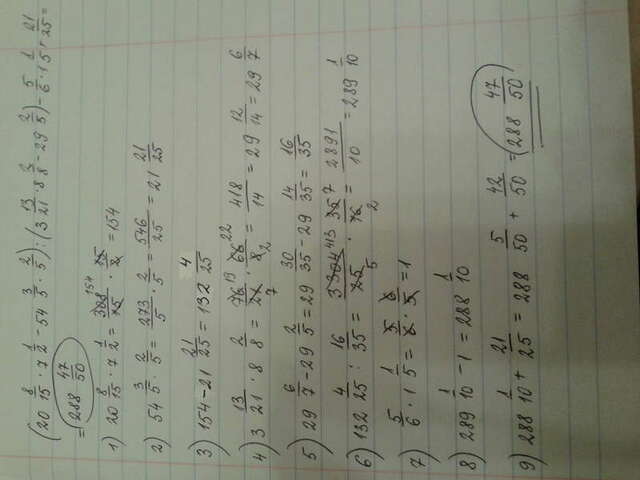 (20 8/15 · 7 1/2 - 54 3/5 · 2/5) : (3 13/21 · 8 2/8 - 29 2/5) - 5/6 · 1 1/5 + 21/25 =
= (288 47/50)
1) 20 8/15 · 7 1/2 = 308/15 · 15/2 = 154
2) 54 3/5 · 2/5 = 273/5 · 2/5 = 546/25 = 21 21/25
3) 154 - 21 21/25 = 132 4/25
4) 3 13/21 · 8 2/8 = 76/21 · 66/8 = 418/14 = 29 12/14 = 29 6/7
5) 29 6/7 - 29 2/5 = 29 30/35 - 29 14/35 = 16/35
6) 132 4/25 : 16/35 = 3304/25 · 35/16 = 2891/10 = 289 1/10
7) 5/6 · 1 1/5 = 5/6 · 6/5 = 1
8) 289 1/10 - 1 = 288 1/10
9) 288 1/10 + 21/25 = 288 5/50 + 42/50 = (288 47/50)